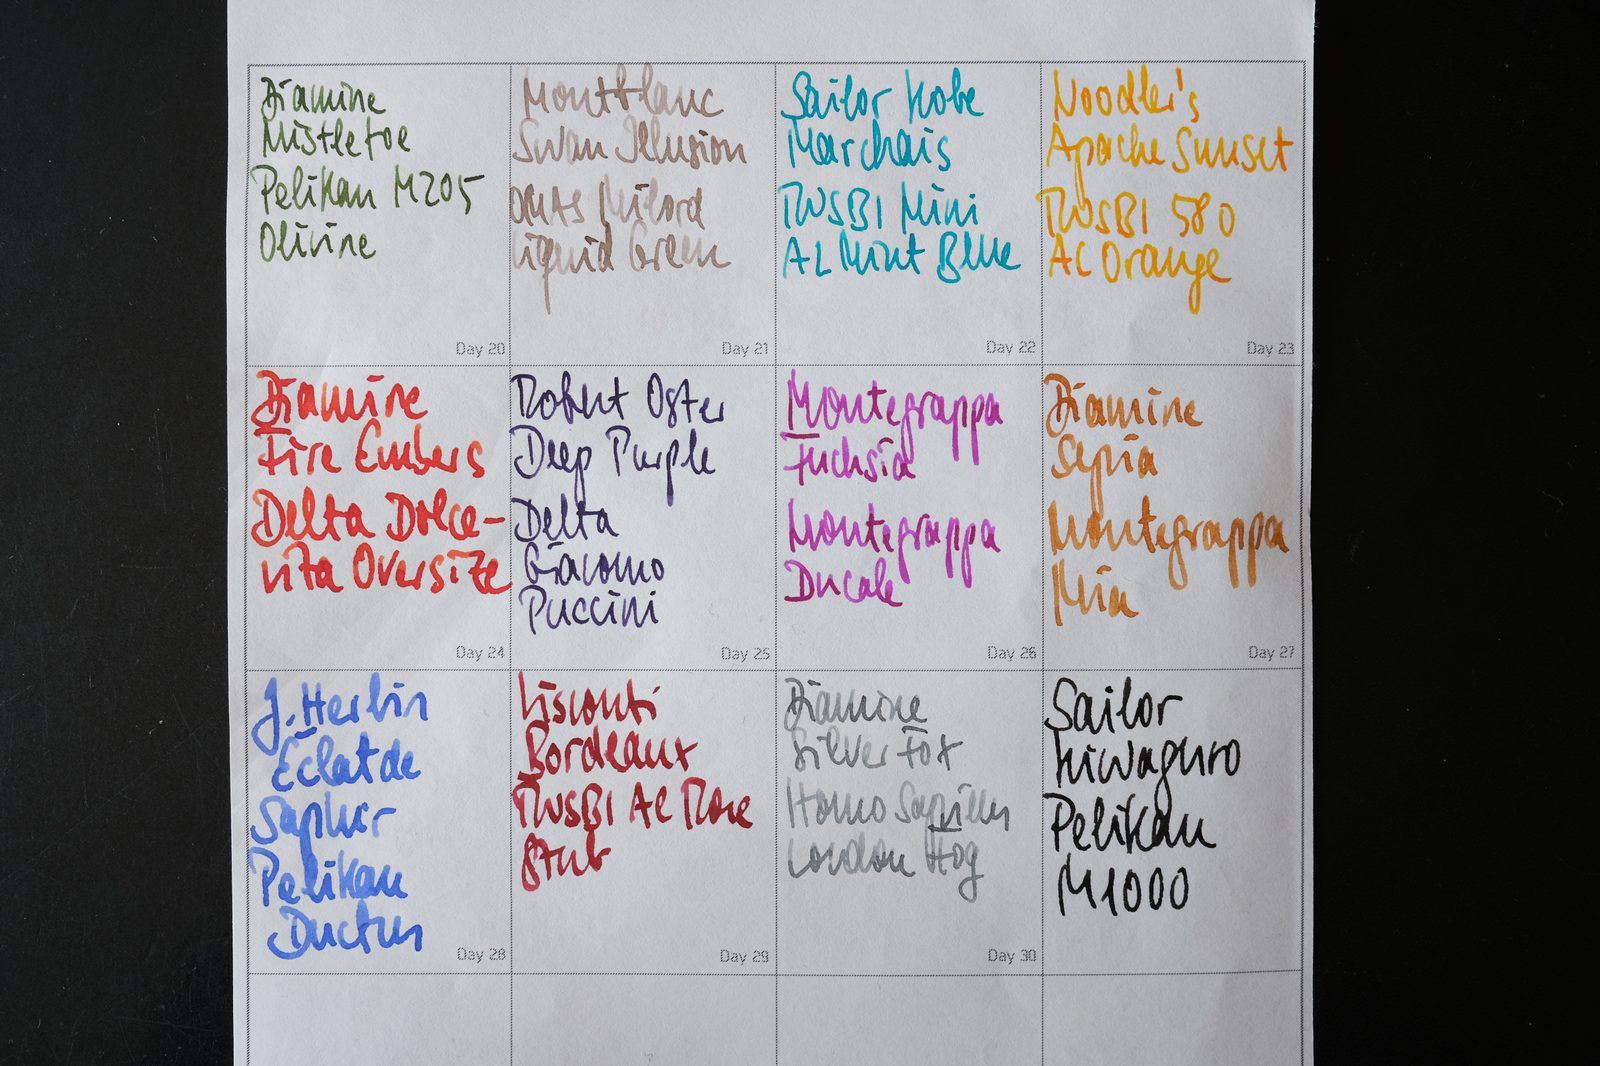 Diamine
Mistletoe
Pelikan M205
Olivine
Day 20
Montblanc
Swan Illusion
OMAS Milord
Liquid Green
Day 21
Sailor Kobe
Marchais
TWSBI Mini
AL Mint Blue
Day 22
Noodler's
Apache Sunset
TWSBI 580
AL Orange
Day 23
Diamine
Fire Embers
Delta Dolce-
vita Oversize
Day 24
Robert Oster
Deep Purple
Delta
Giacomo
Puccini
Day 25
Montegrappa
Fuchsia
Montegrappa
Ducale
Day 26
Diamine
Sepia
Montegrappa
Mia
Day 27
J. Herbin
Éclat de
Saphir
Pelikan
Ductus
Day 28
Visconti
Bordeaux
TWSBI AL Rose
Stub
Day 29
Diamine
Silver Fox
Homo Sapiens
London Fog
Day 30
Sailor
Kiwaguro
Pelikan
M1000